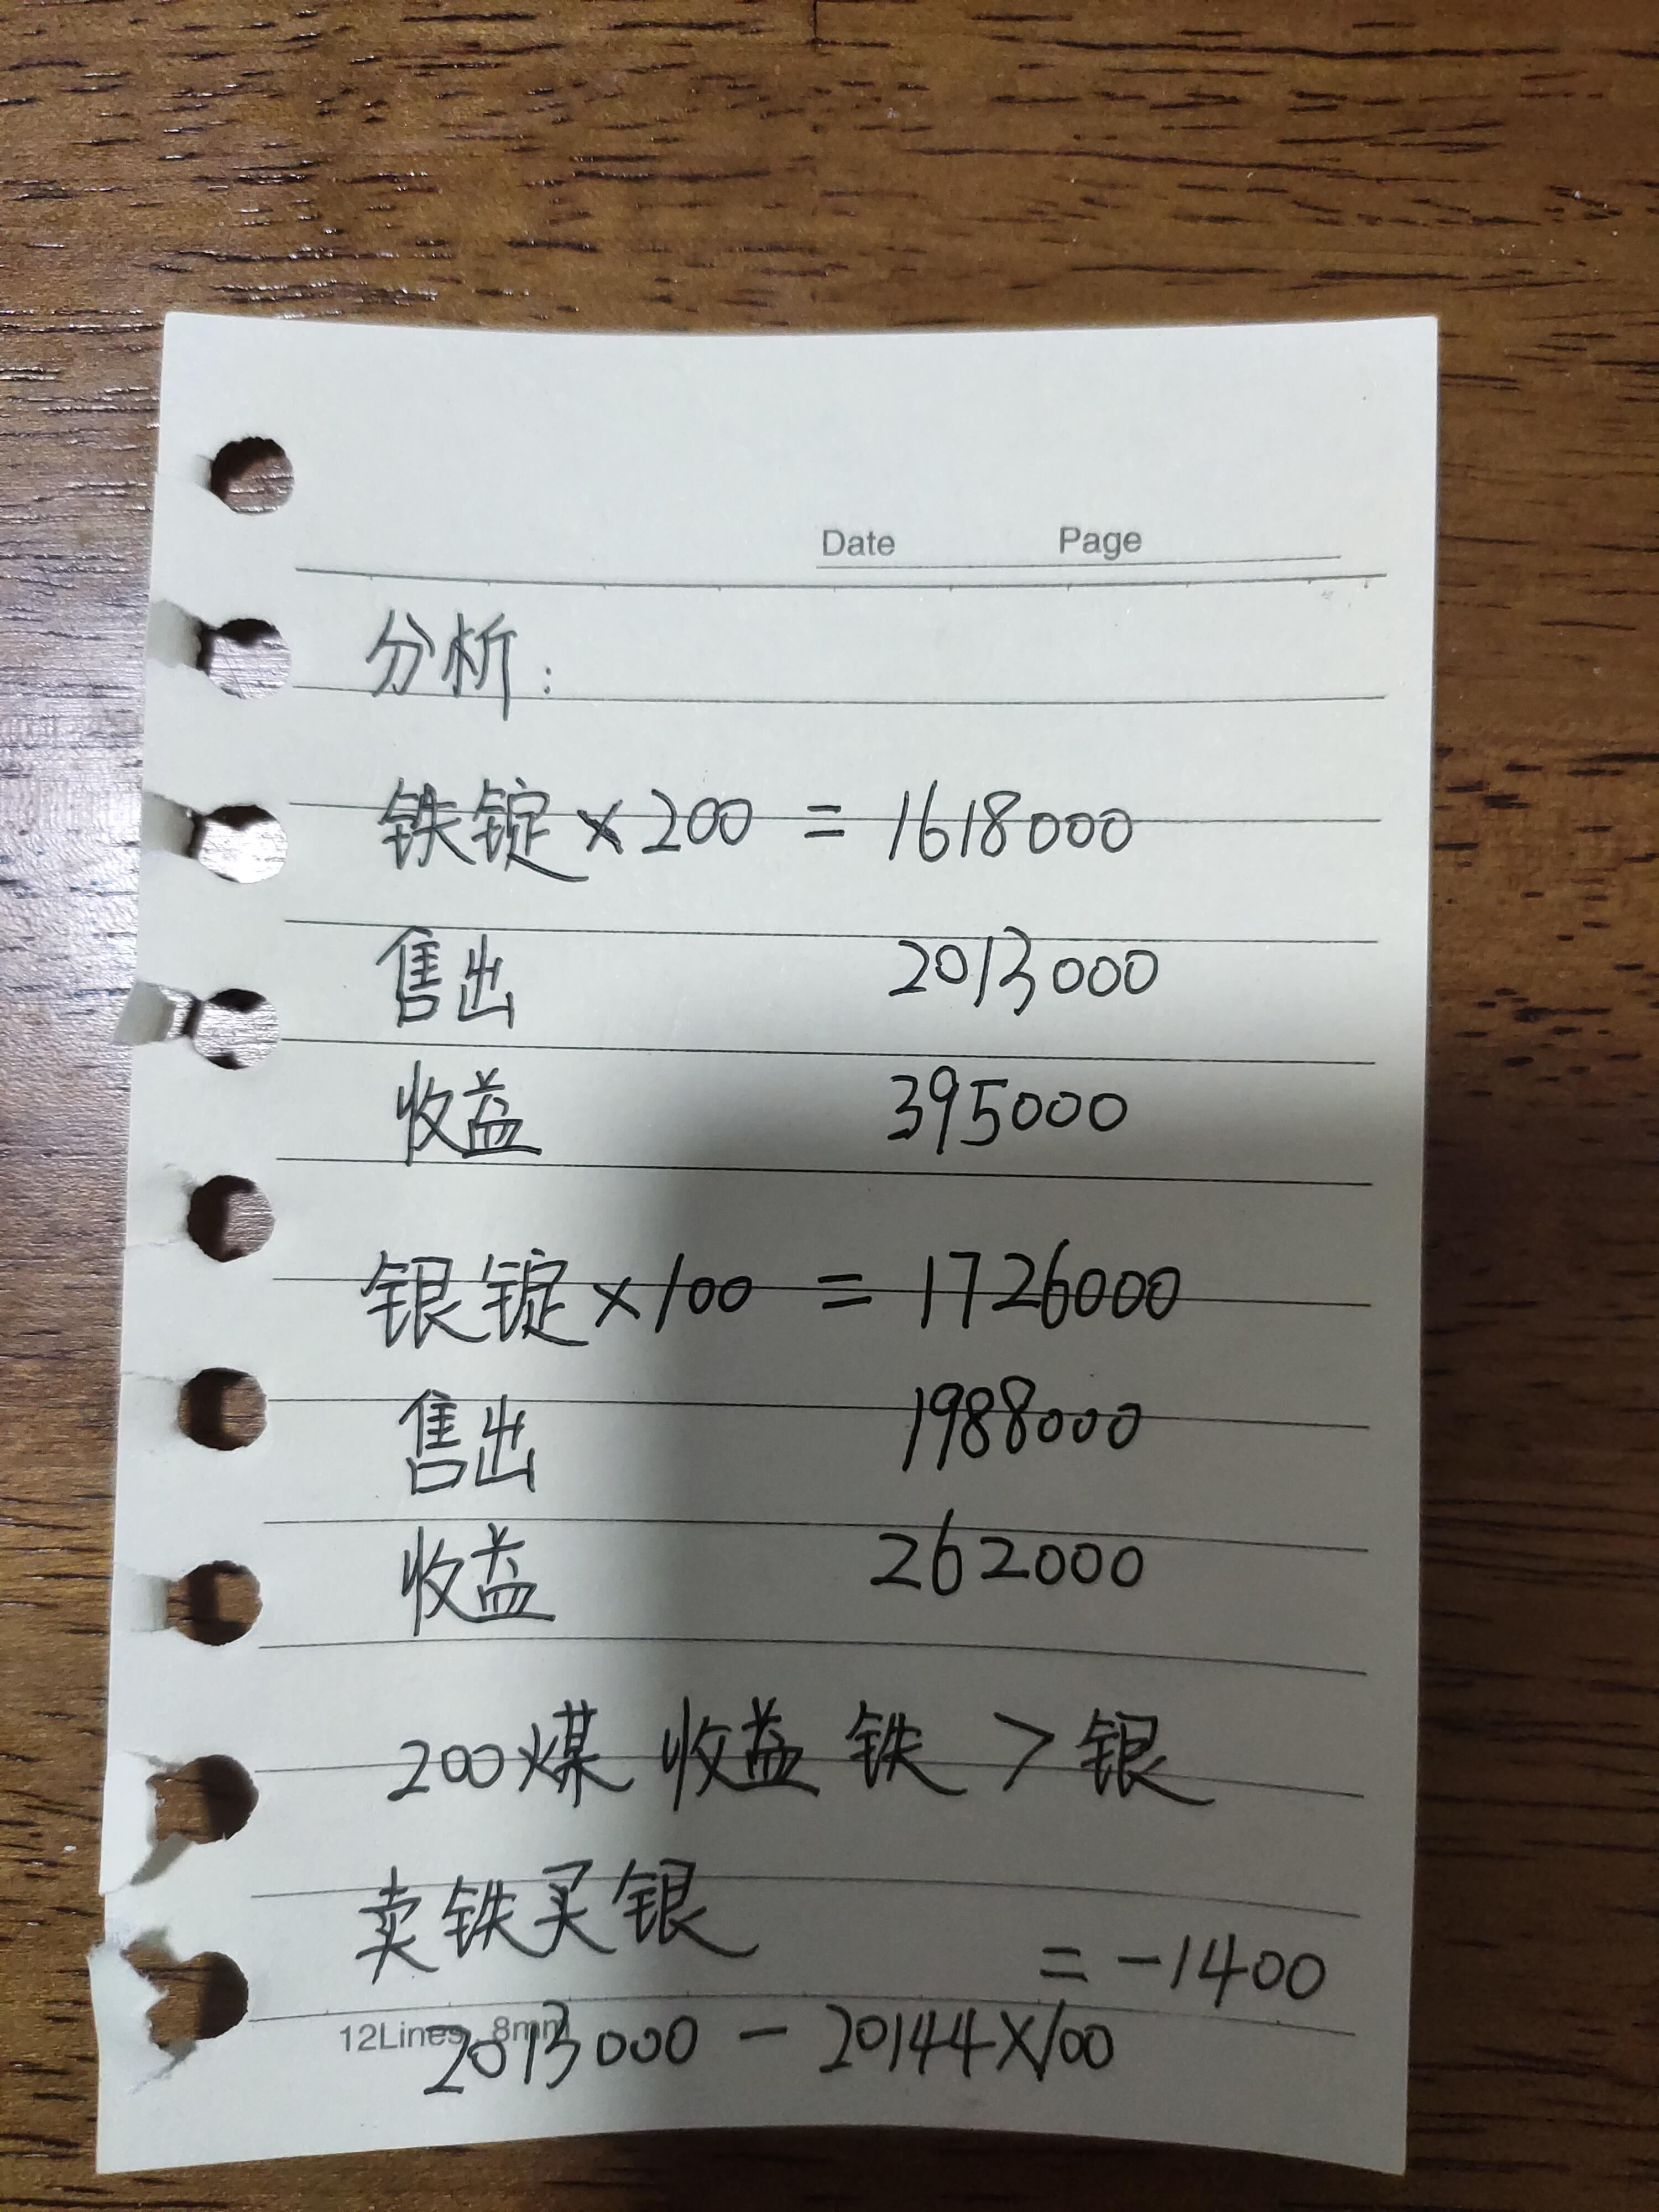 Date Page
分析:
铁锭×200 = 1618000
售出 2013000
收益 395000
银锭×100 = 1726000
售出 1988000
收益 262000
200煤 收益 铁 > 银
卖铁买银
= -1400
12Lines 8mm
2013000 - 20144×100